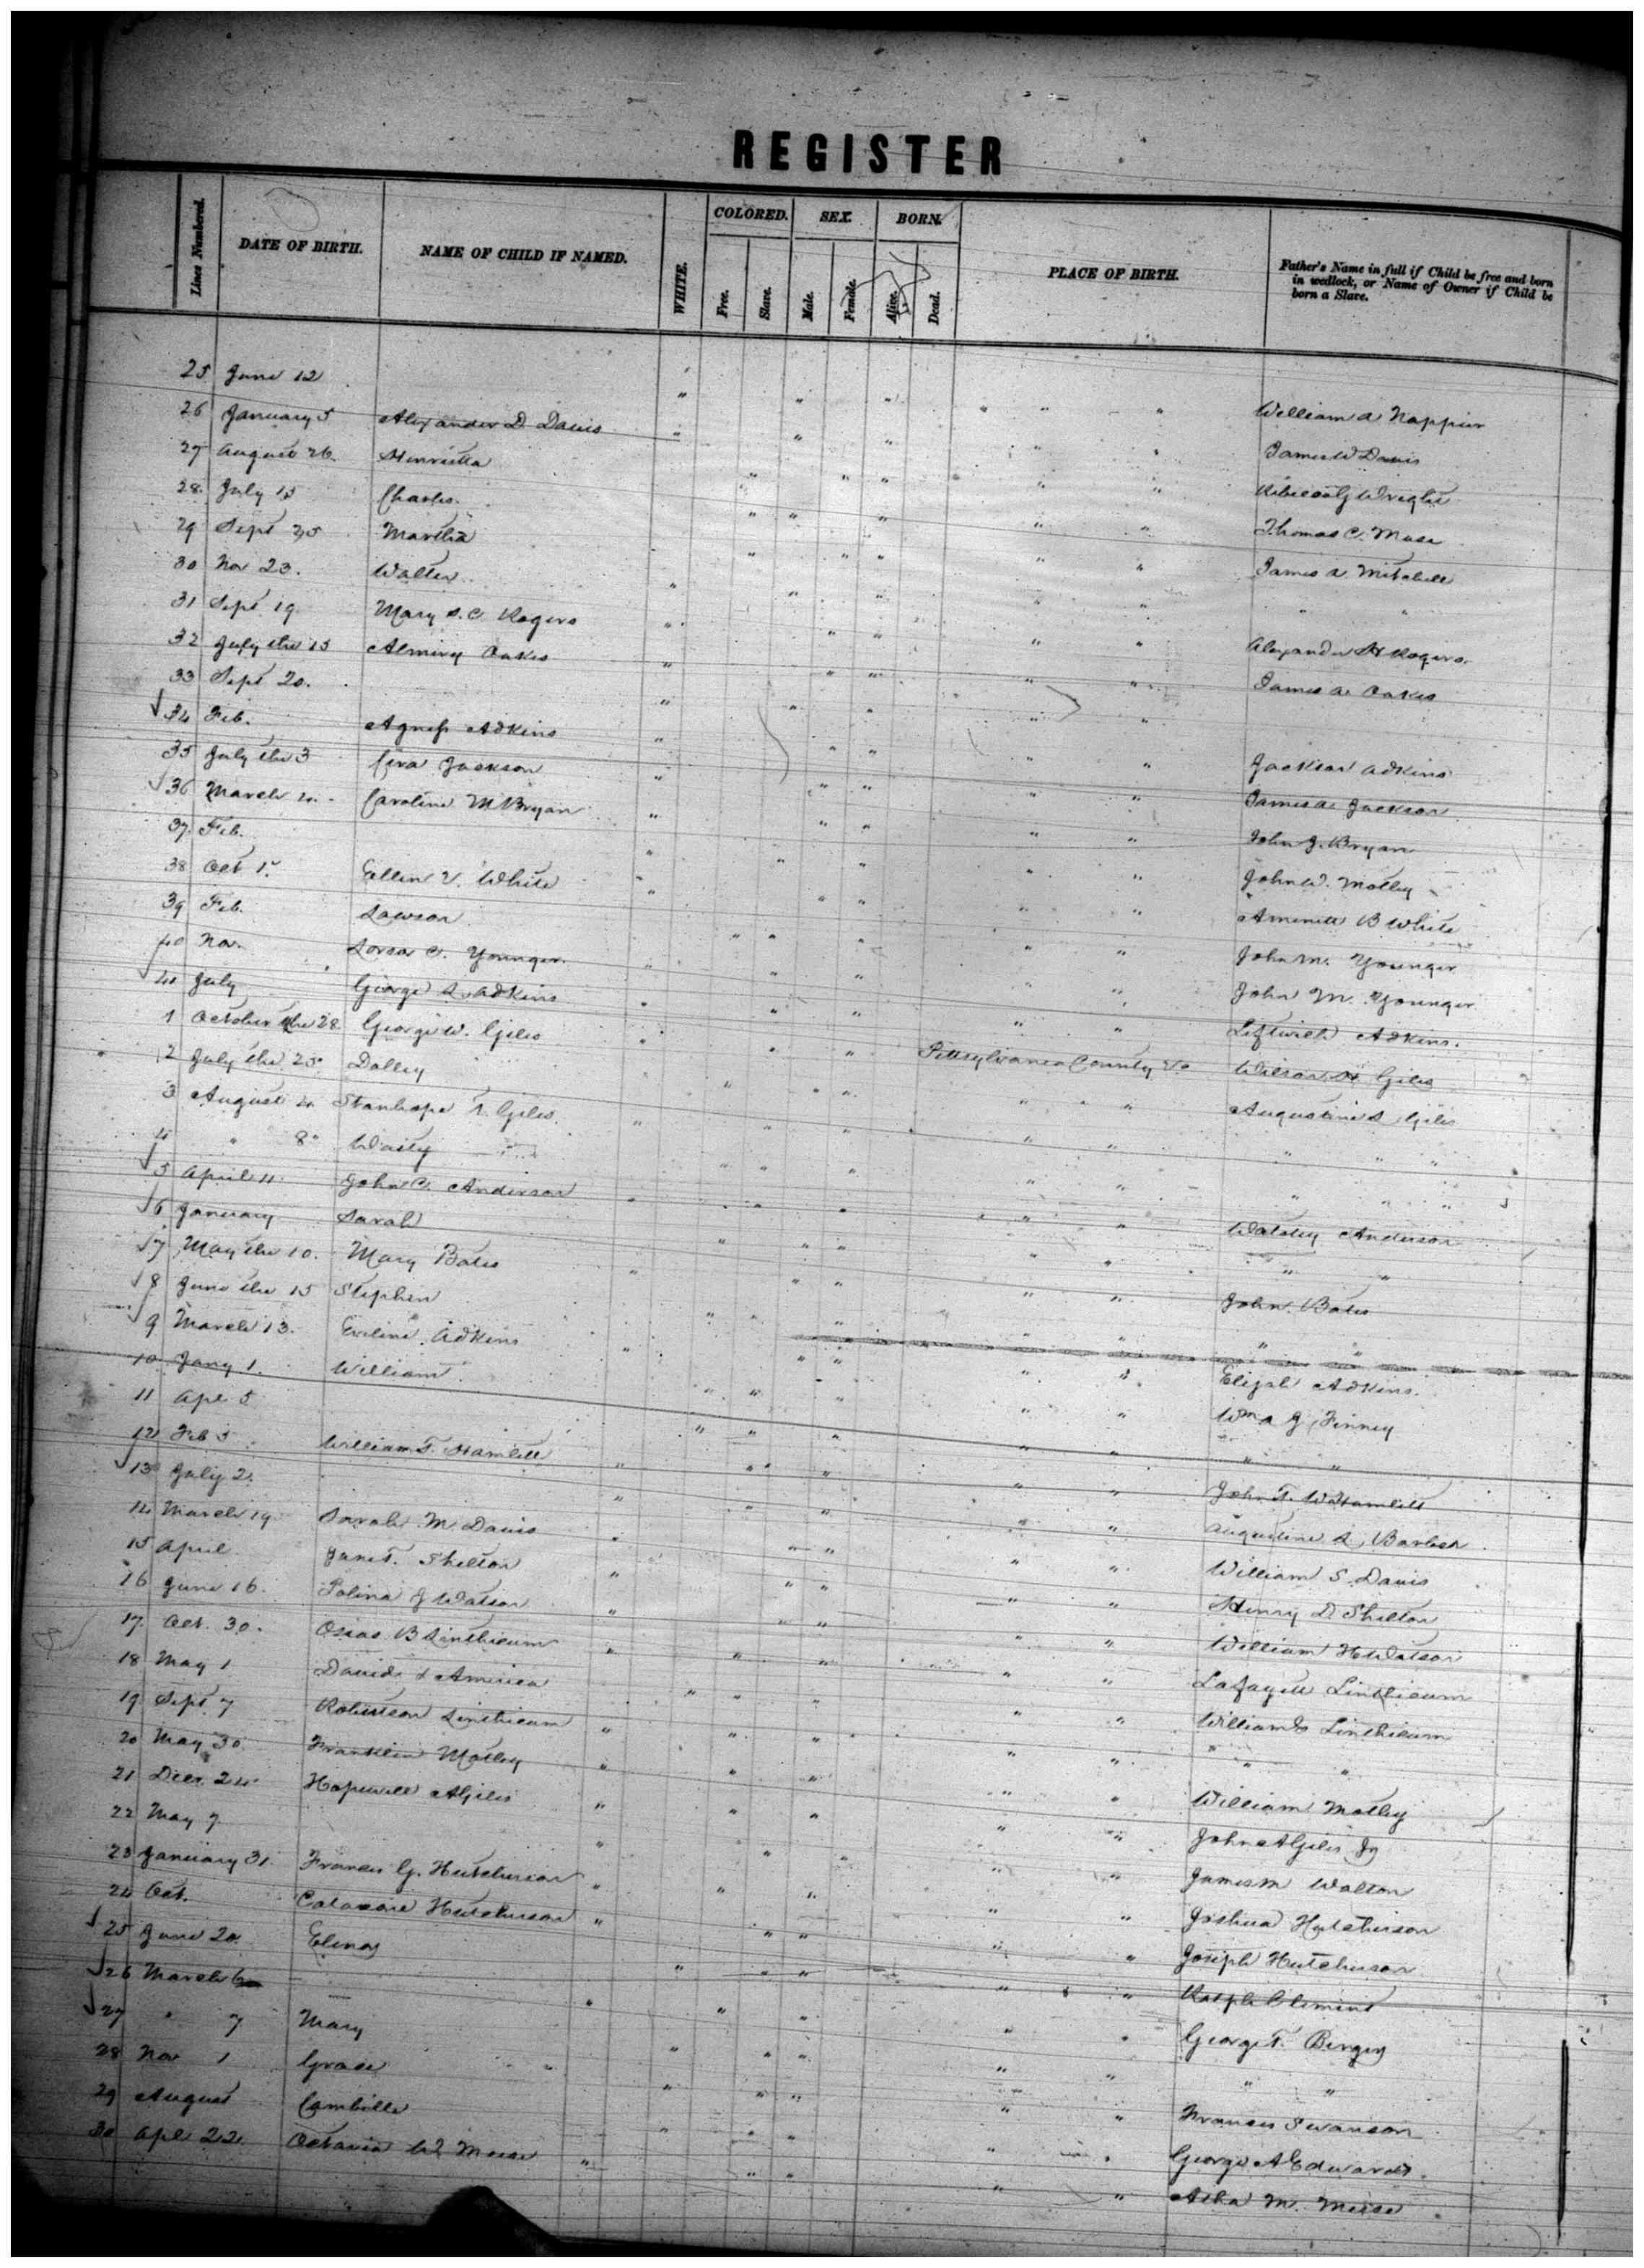 REGISTER
Lines Numbered. DATE OF BIRTH. NAME OF CHILD IF NAMED. WHITE. COLORED. Free. Slave. SEX. Male. Female. BORN. Alive. Dead. PLACE OF BIRTH. Father's Name in full if Child be free and born in wedlock, or Name of Owner if Child be born a Slave.
25 June 12 " " " " " " William A Nappier
26 January 5 Alexander D Davis " " " " " James W Davis
27 August 26. Henrietta " " " " " Wright
28. July 15 Charles. " " " " " Thomas C. Muse
29 Sept 25 Martha " " " " " James A Mitchell
30 Nov 23. Walter " " " " " " "
31 Sept 19 Mary S. C Rogers " " " " " Alexander H Rogers.
32 July the 15 Almiry Oakes " " " " " James A. Oakes
33 Sept 20. " " " " "
34 Feb. Agness Adkins " " " " " Jackson Adkins
35 July the 3 Cira Jackson " " " " " James A. Jackson
36 March 4. Caroline M Bryan " " " " " John J. Bryan
37. Feb. " " " " " John W. Motley
38 Oct 1. Ellen V. White " " " " " B White
39 Feb. Lawson " " " " " John M. Younger
40 Nov. C. Younger. " " " " " John M. Younger
41 July George A. Adkins " " " " " Leftwich Adkins.
1 October the 28 George W. Giles " " " Pittsylvania County Va Wilson H Giles
2 July the 25 Dolley " " " " " Augustine S Giles
3 August 4 Stanhope A. Giles. " " " " " " "
4 " 8 " " " " " " "
5 April 11. John C. Anderson " " " " " Anderson
6 January Sarah " " " " " " "
7 May the 10. Mary Bates " " " " " John Bates
8 June the 15 Stephen " " " " " "
9 March 13. Eveline Adkins " " " " " Elijah Adkins.
10 Jany 1. William " " " " " Wm A J Finney
11 Apl 5 " " " " " "
12 Feb 3 William T. Hamlett " " " " " John T. W Hamlett
13 July 2. " " " " " Augustine
14 March 19 Sarah M. Davis " " " " " William S. Davis
15 April Jane T. Shelton " " " " " Henry D Shelton
16 June 16. Polina J Watson " " " " " William H Watson
17. Oct. 30. Osias B Linthicum " " " " " Lafayett Linthicum
18 May 1 David & America " " " " " William Linthicum
19 Sept 7 Robertson Linthicum " " " " " " "
20 May 30. Franklin Motley " " " " " William Motley
21 Decr. 24 Hopewell A Giles " " " " " John A Giles Jr
22 May 7 " " " " " James M Walton
23 January 31. Frances G. Hutcherson " " " " " Joshua Hutcherson
24 Oct. Hutcherson " " " " " Joseph Hutcherson
25 June 20. " " " " " Ralph Clement
26 March 6 " " " " " George T. Berger
27 " 7 Mary " " " " " " "
28 Nov 1 Grace " " " " " Frances Swanson
29 August " " " " " George A Edwards.
30 Apl 22. Octavia W Muse " " " " " M. Muse